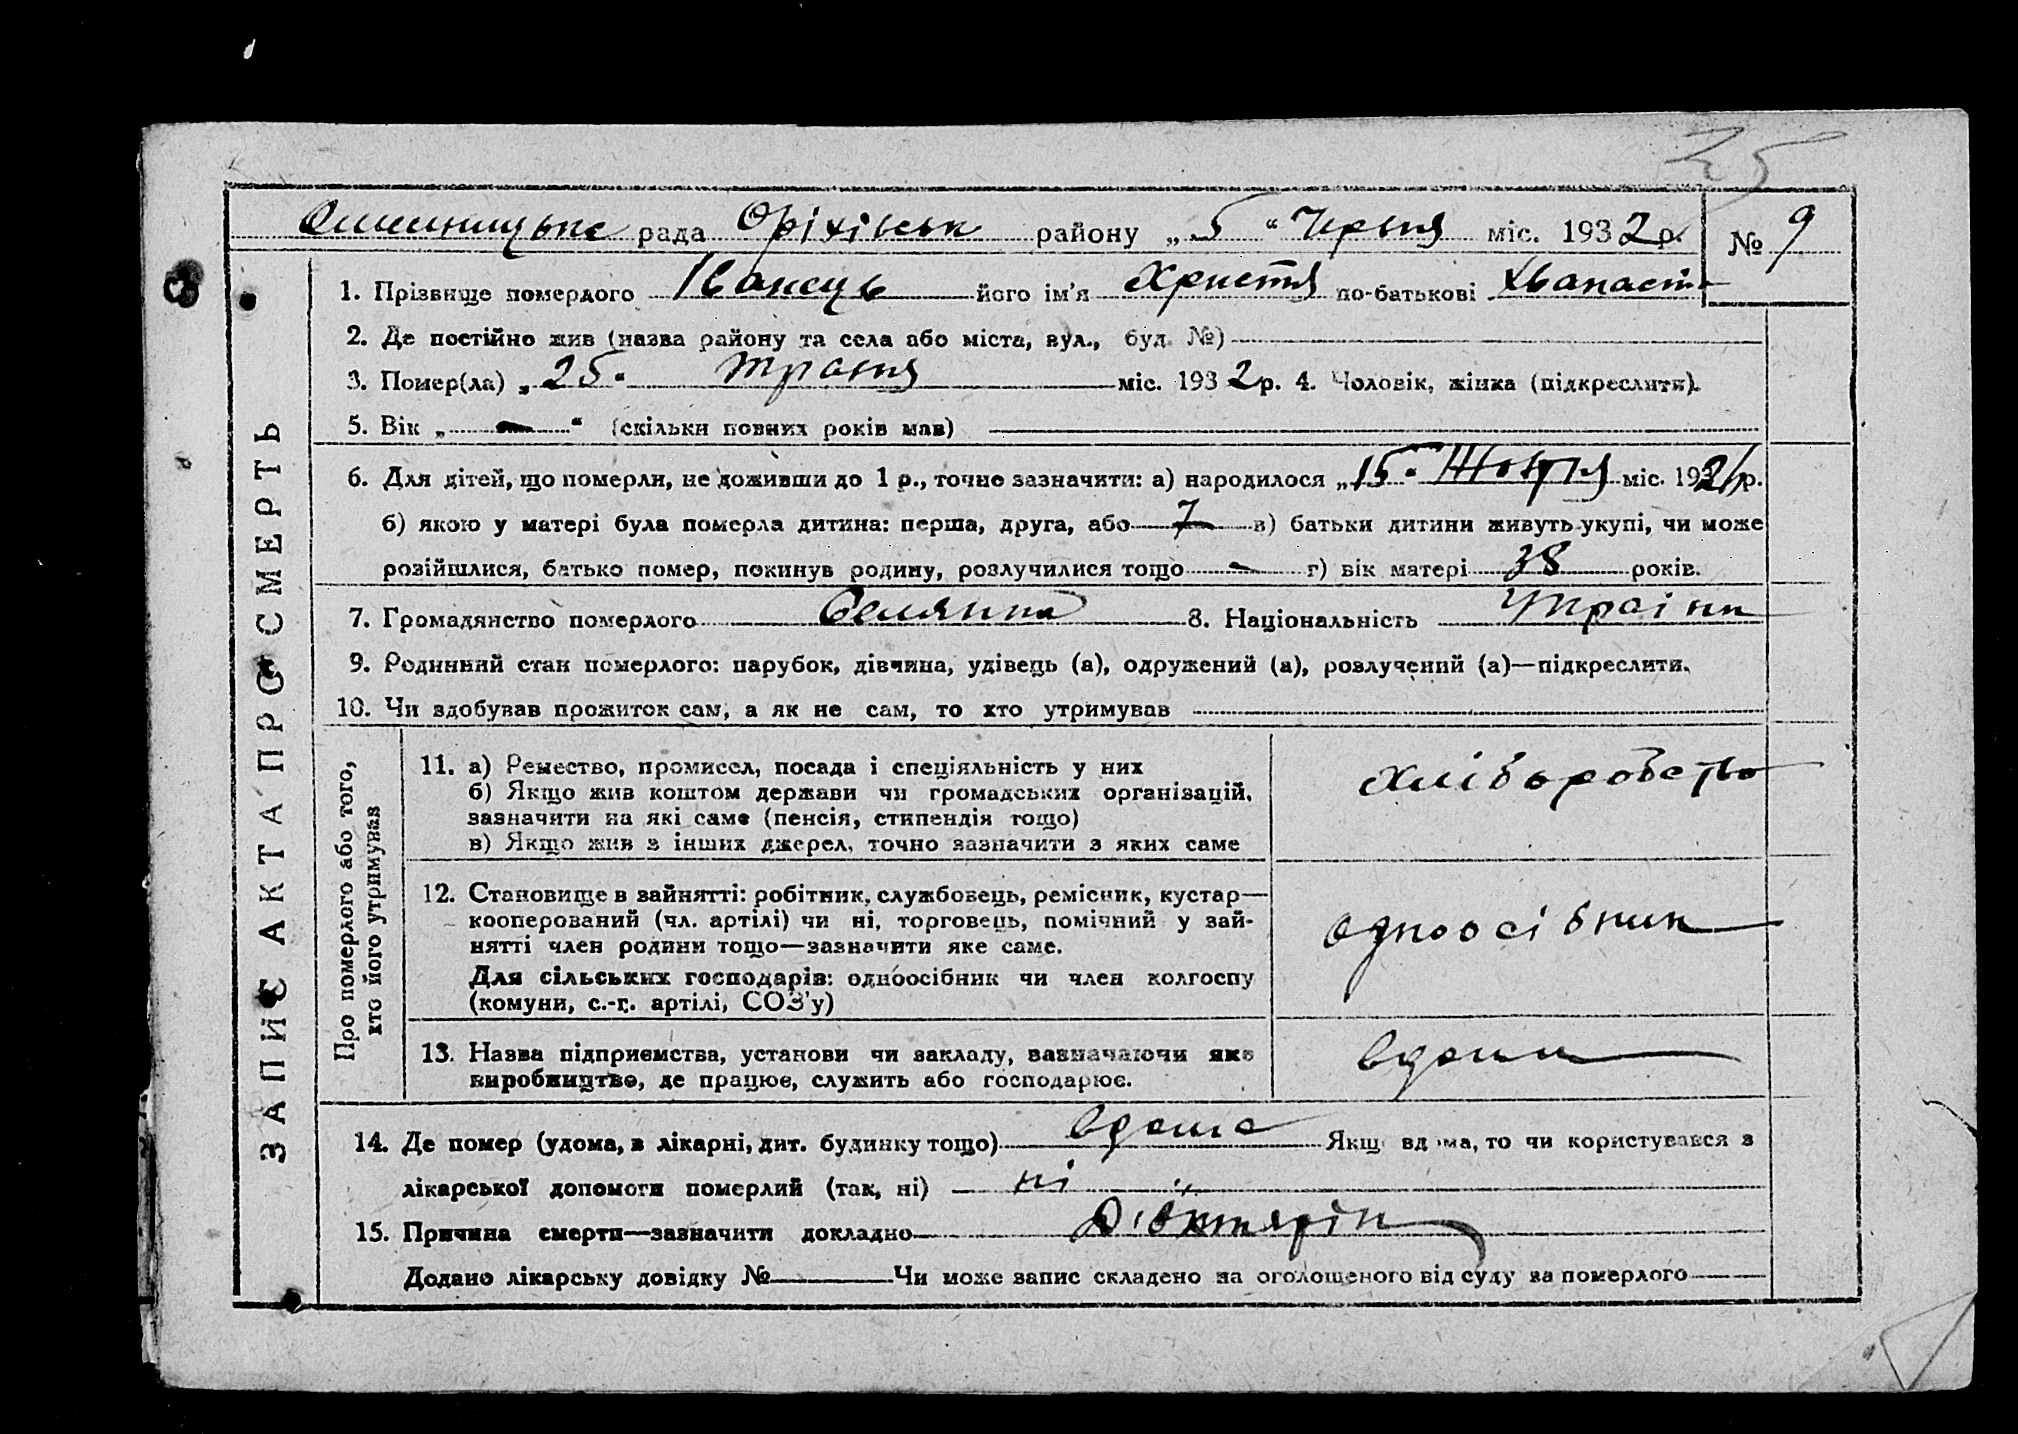 25
рада Оріхівськ району „ 5 “ Червня міс. 1932 р. № 9
1. Прізвище померлого Іванець його ім'я Христя по-батькові Хванасі
2. Де постійно жив (назва району та села або міста, вул., буд. №)
3. Помер(ла) „ 25. травня міс. 1932 р. 4. Чоловік, жінка (підкреслити).
5. Вік „ — “ (скільки повних років мав)
6. Для дітей, що померли, не доживши до 1 р., точно зазначити: а) народилося „ 15. Жовтня міс. 1931 р.
б) якою у матері була померла дитина: перша, друга, або 7 в) батьки дитини живуть укупі, чи може
розійшлися, батько помер, покинув родину, розлучилися тощо — г) вік матері 38 років.
7. Громадянство померлого Селянка 8. Національність Україн
9. Родинний стан померлого: парубок, дівчина, удівець (а), одружений (а), розлучений (а)—підкреслити.
10. Чи здобував прожиток сам, а як не сам, то хто утримував
ЗАПИС АКТА ПРО СМЕРТЬ
Про померлого або того,
хто його утримував
11. а) Ремество, промисел, посада і спеціяльність у них
б) Якщо жив коштом держави чи громадських організацій,
зазначити на які саме (пенсія, стипендія тощо)
в) Якщо жив з інших джерел, точно зазначити з яких саме
хліборобство
12. Становище в зайнятті: робітник, службовець, ремісник, кустар—
кооперований (чл. артілі) чи ні, торговець, помічний у зай-
нятті член родини тощо—зазначити яке саме.
Для сільських господарів: одноосібник чи член колгоспу
(комуни, с.-г. артілі, СОЗ'у)
одноосібник
13. Назва підприємства, установи чи закладу, зазначаючи яке
виробництво, де працює, служить або господарює.
вдома
14. Де помер (удома, в лікарні, дит. будинку тощо) вдома Якщо вдома, то чи користувався з
лікарської допомоги померлий (так, ні) ні
15. Причина смерти—зазначити докладно
Додано лікарську довідку № Чи може запис складено на оголошеного від суду за померлого